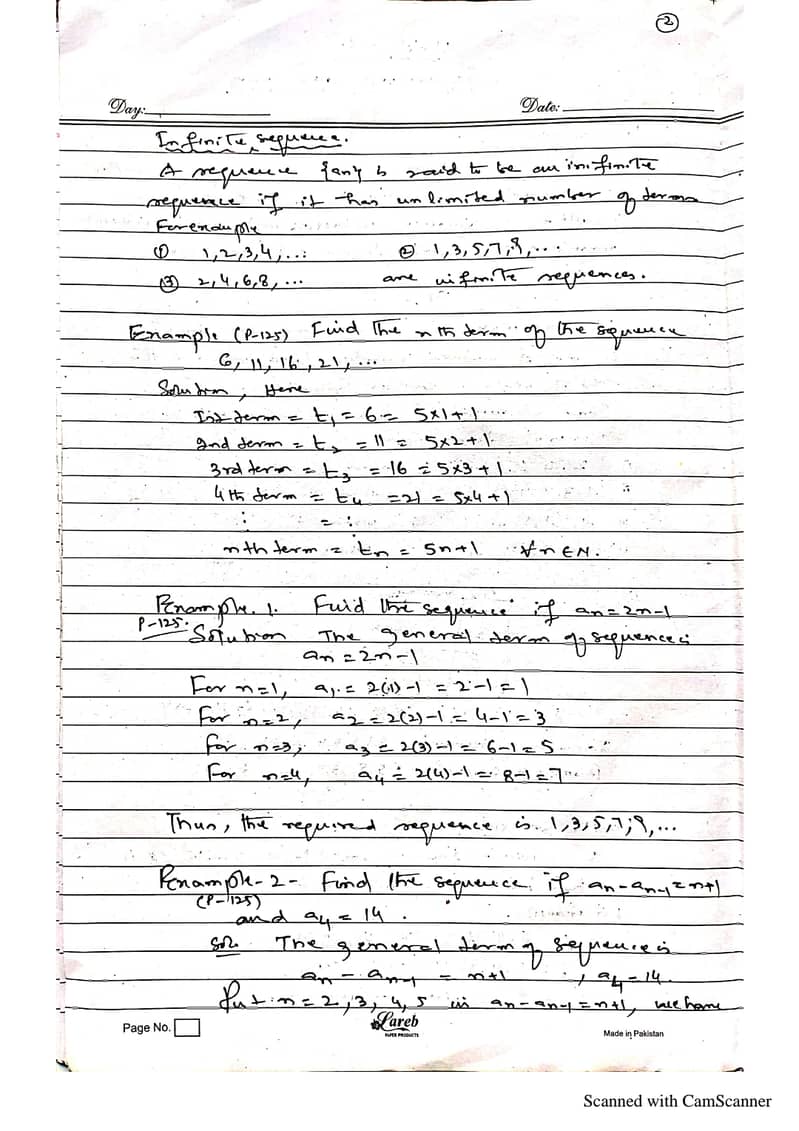 2
Day: Date:
Infinite sequence.
A sequence {an} is said to be an infinite
sequence if it has unlimited number of terms
For example
① 1,2,3,4,... ② 1,3,5,7,9,...
③ 2,4,6,8,... are infinite sequences.
Example (P-125) Find the nth term of the sequence
6, 11, 16, 21, ...
Solution, Here
Ist term = t₁ = 6 = 5×1+1
2nd term = t₂ = 11 = 5×2+1
3rd term = t₃ = 16 = 5×3+1
4th term = t₄ = 21 = 5×4+1
: = :
nth term = tn = 5n+1 ∀n∈N.
Example. 1. Find the sequence if an=2n-1
P-125. Solution The general term of sequence is
an = 2n-1
For n=1, a₁ = 2(1)-1 = 2-1 = 1
For n=2, a₂ = 2(2)-1 = 4-1 = 3
For n=3, a₃ = 2(3)-1 = 6-1 = 5
For n=4, a₄ = 2(4)-1 = 8-1 = 7
Thus, the required sequence is 1,3,5,7,9,...
Example-2- Find the sequence if an-an-1=n+1
(P-125) and a₄ = 14.
Sol. The general term of sequence is
an - an-1 = n+1 , a₄=14.
Put n=2,3,4,5 in an-an-1=n+1, we have
Page No. Lareb PAPER PRODUCTS Made in Pakistan
Scanned with CamScanner